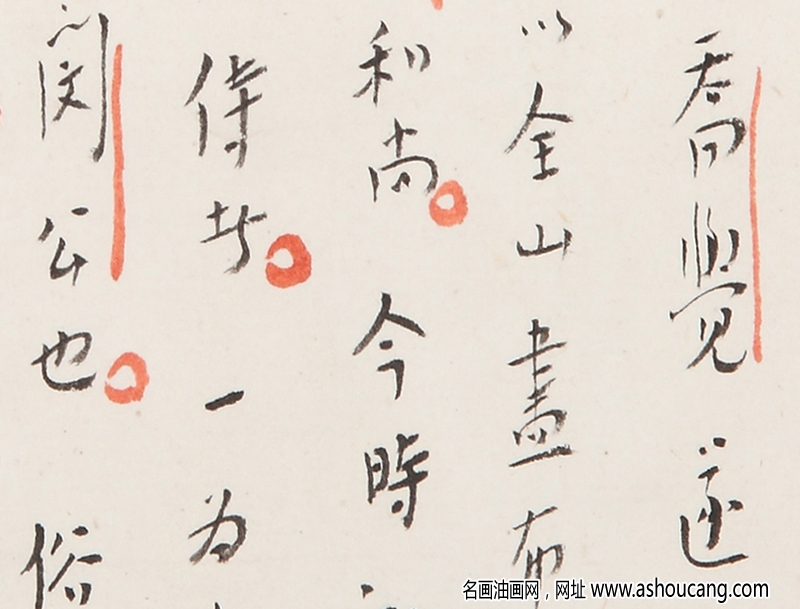 喬覺遂
以全山盡布
和尚今時
侍者一為
閔公也俗
名画油画网，网址 www.ashoucang.com